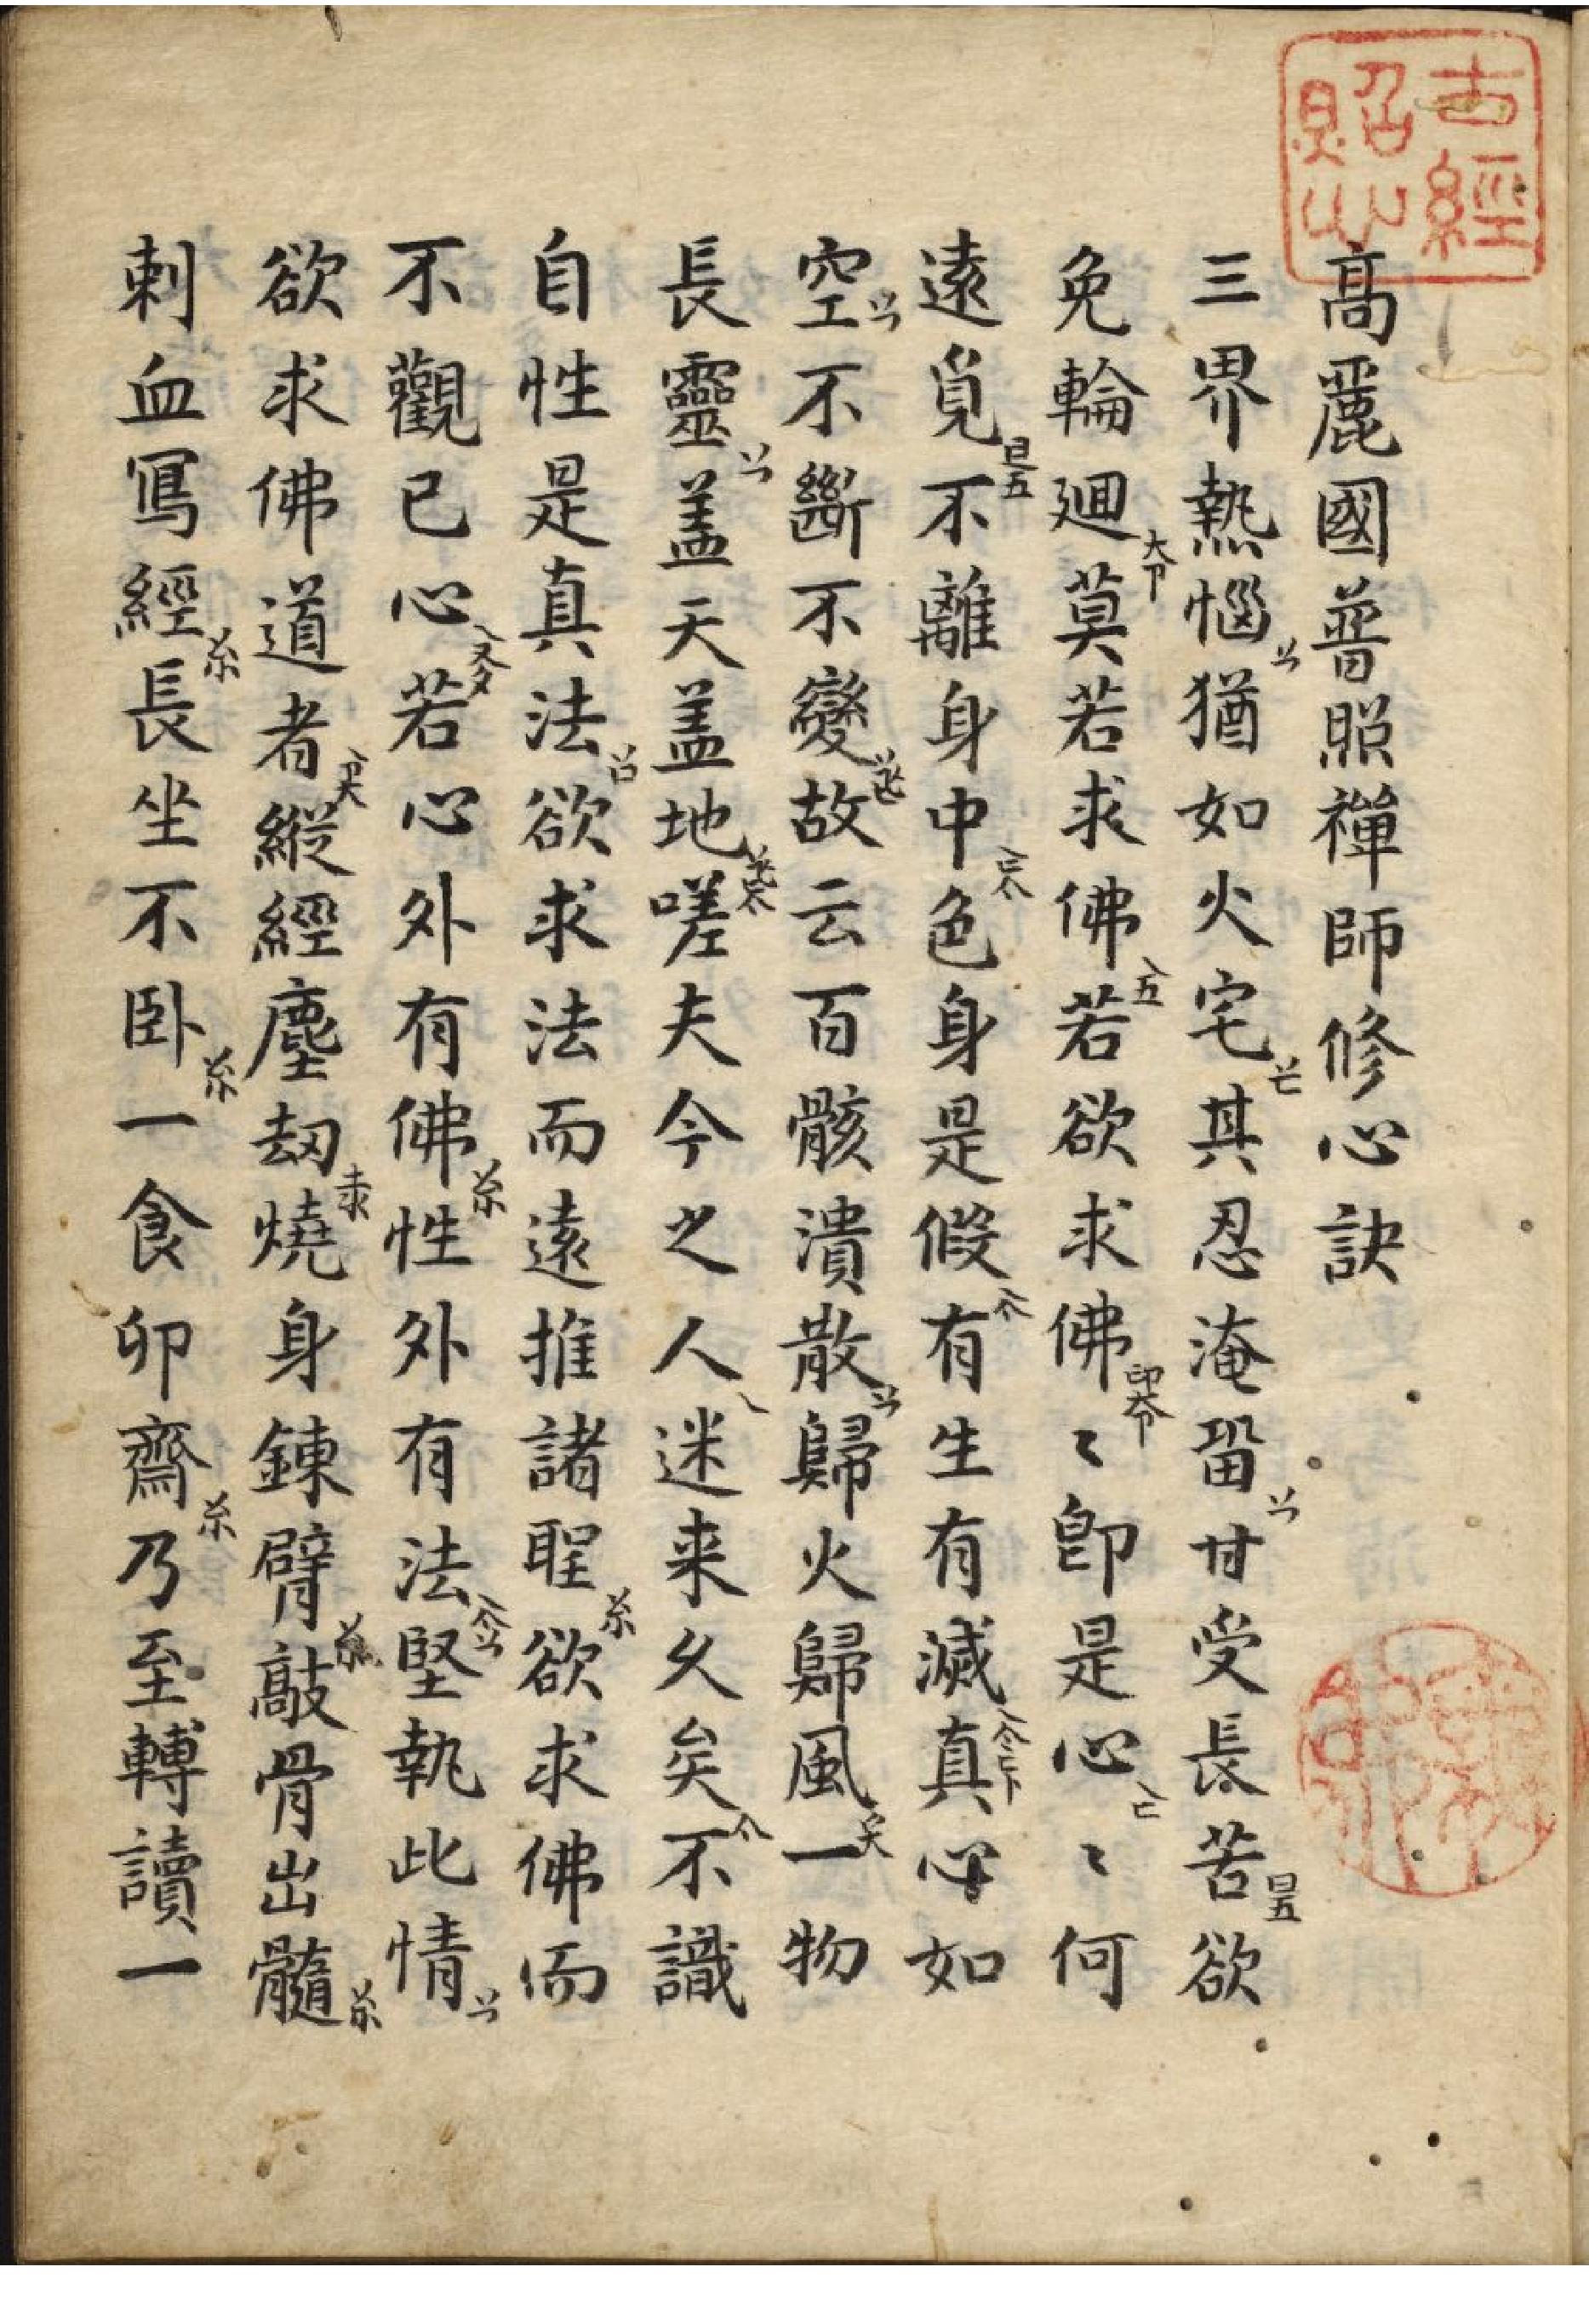 高麗國普照禪師修心訣
三界熱惱猶如火宅其忍淹留甘受長苦欲
免輪廻莫若求佛若欲求佛〻即是心〻何
遠覓不離身中色身是假有生有滅真心如
空不斷不變故云百骸潰散歸火歸風一物
長靈盖天盖地嗟夫今之人迷来久矣不識
自性是真法欲求法而遠推諸聖欲求佛而
不觀已心若心外有佛性外有法堅執此情
欲求佛道者縱經塵劫燒身鍊臂敲骨出髓
刺血寫經長坐不卧一食卯齋乃至轉讀一